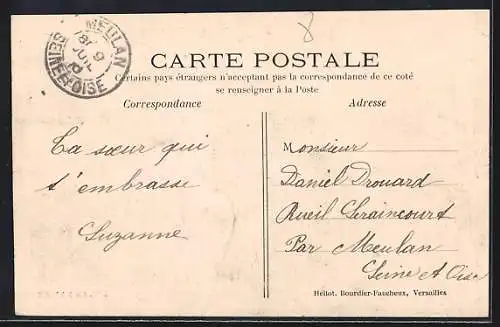 MEULAN
SEINE-ET-OISE
8
CARTE POSTALE
Certains pays étrangers n'acceptant pas la correspondance de ce coté
se renseigner à la Poste
Correspondance
Adresse
Ta sœur qui
t'embrasse
Suzanne
Monsieur
Daniel Drouard
Rueil Seraincourt
Par Meulan
Seine et Oise
Héliot. Bourdier-Faucheux, Versailles